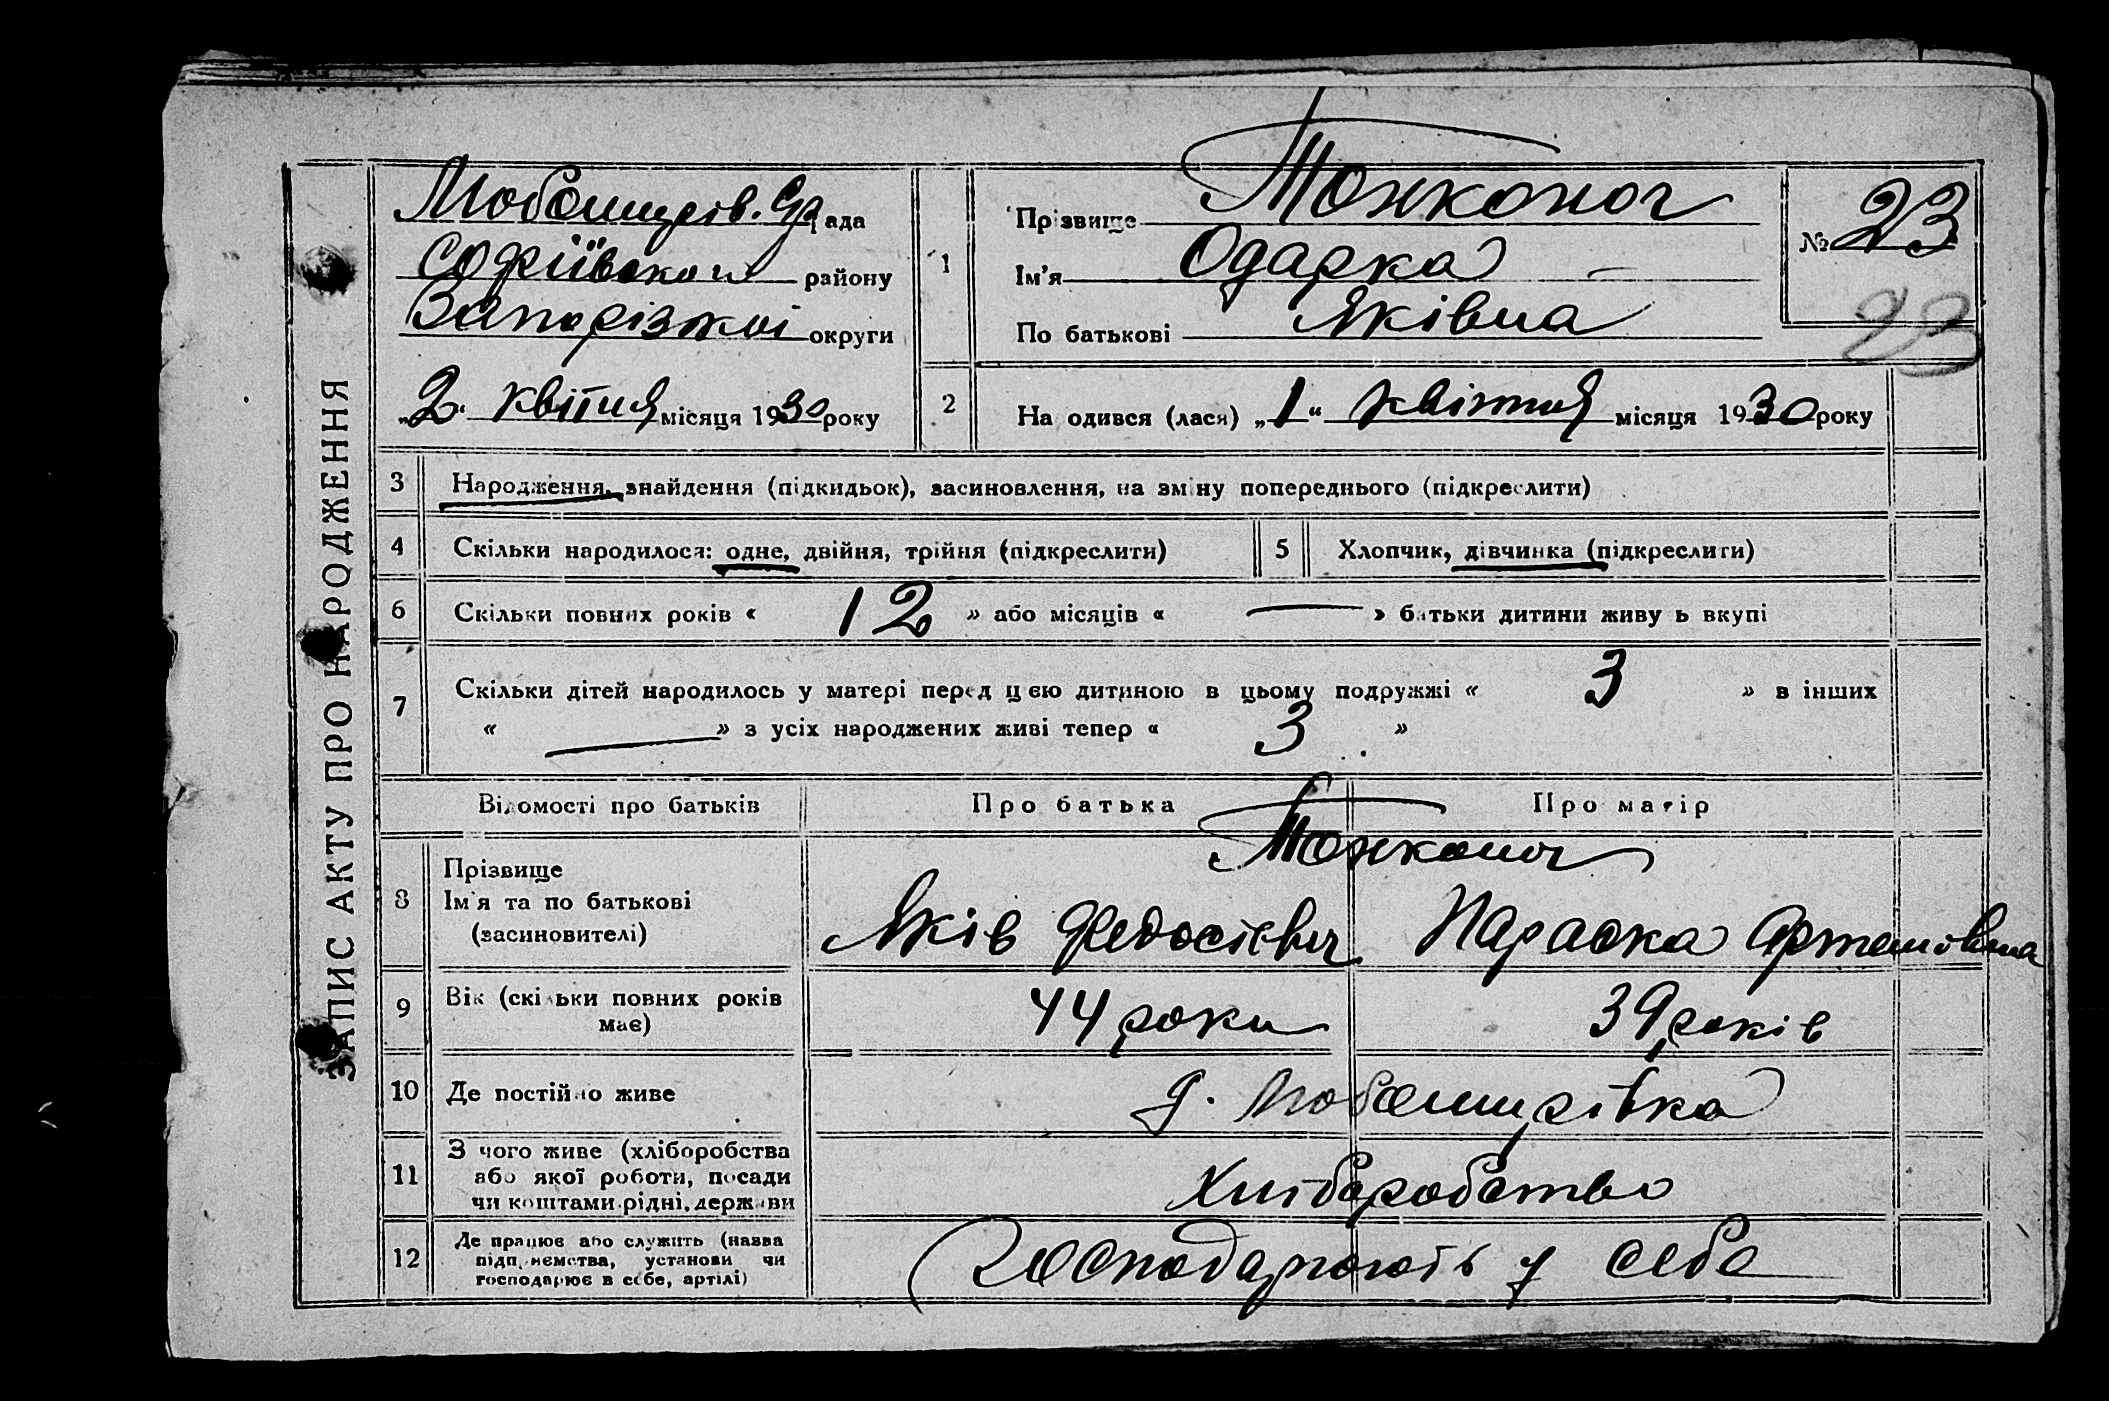 ЗАПИС АКТУ ПРО НАРОДЖЕННЯ
Любомирів. С/рада
Софіївського району
Запорізької округи
„2“ квітня місяця 1930 року
1
Прізвище Тонконог
Ім'я Одарка
По батькові Яківна
№ 23
23
2
На одився (лася) „1“ квітня місяця 1930 року
3 Народження, знайдення (підкидьок), засиновлення, на зміну попереднього (підкреслити)
4 Скільки народилося: одне, двійня, трійня (підкреслити)
5 Хлопчик, дівчинка (підкреслити)
6 Скільки повних років « 12 » або місяців « — » батьки дитини живу ь вкупі
7 Скільки дітей народилось у матері перед цією дитиною в цьому подружжі « 3 » в інших
« — » з усіх народжених живі тепер « 3 »
Відомості про батьків Про батька Про матір
8 Прізвище
Ім'я та по батькові
(засиновителі)
Тонконог
Яків Федосієвич Параска Артемовна
9 Вік (скільки повних років
має)
44 роки 39 років
10 Де постійно живе
д. Любомирівка
11 З чого живе (хліборобства
або якої роботи, посади
чи коштами рідні, держави
Хліборобство
12 Де працює або служить (назва
підприємства, установи чи
господарює в себе, артілі)
Господарюють у себе